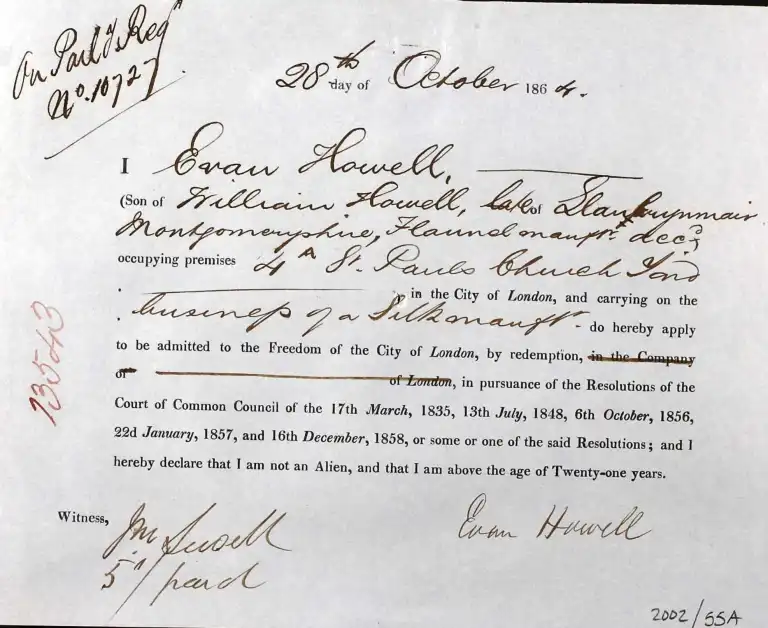 On Parl'y Reg'r
No. 10727
28th day of October 1864.
I Evan Howell,
(Son of William Howell, late of Llanbrynmair
Montgomeryshire, Flannel manufr. decd,
occupying premises 4A St. Pauls Church Yard
in the City of London, and carrying on the
business of a Silk manufr - do hereby apply
to be admitted to the Freedom of the City of London, by redemption, in the Company
of of London, in pursuance of the Resolutions of the
Court of Common Council of the 17th March, 1835, 13th July, 1848, 6th October, 1856,
22d January, 1857, and 16th December, 1858, or some or one of the said Resolutions; and I
hereby declare that I am not an Alien, and that I am above the age of Twenty-one years.
73543
Witness,
Evan Howell
5/ paid
2002/55A